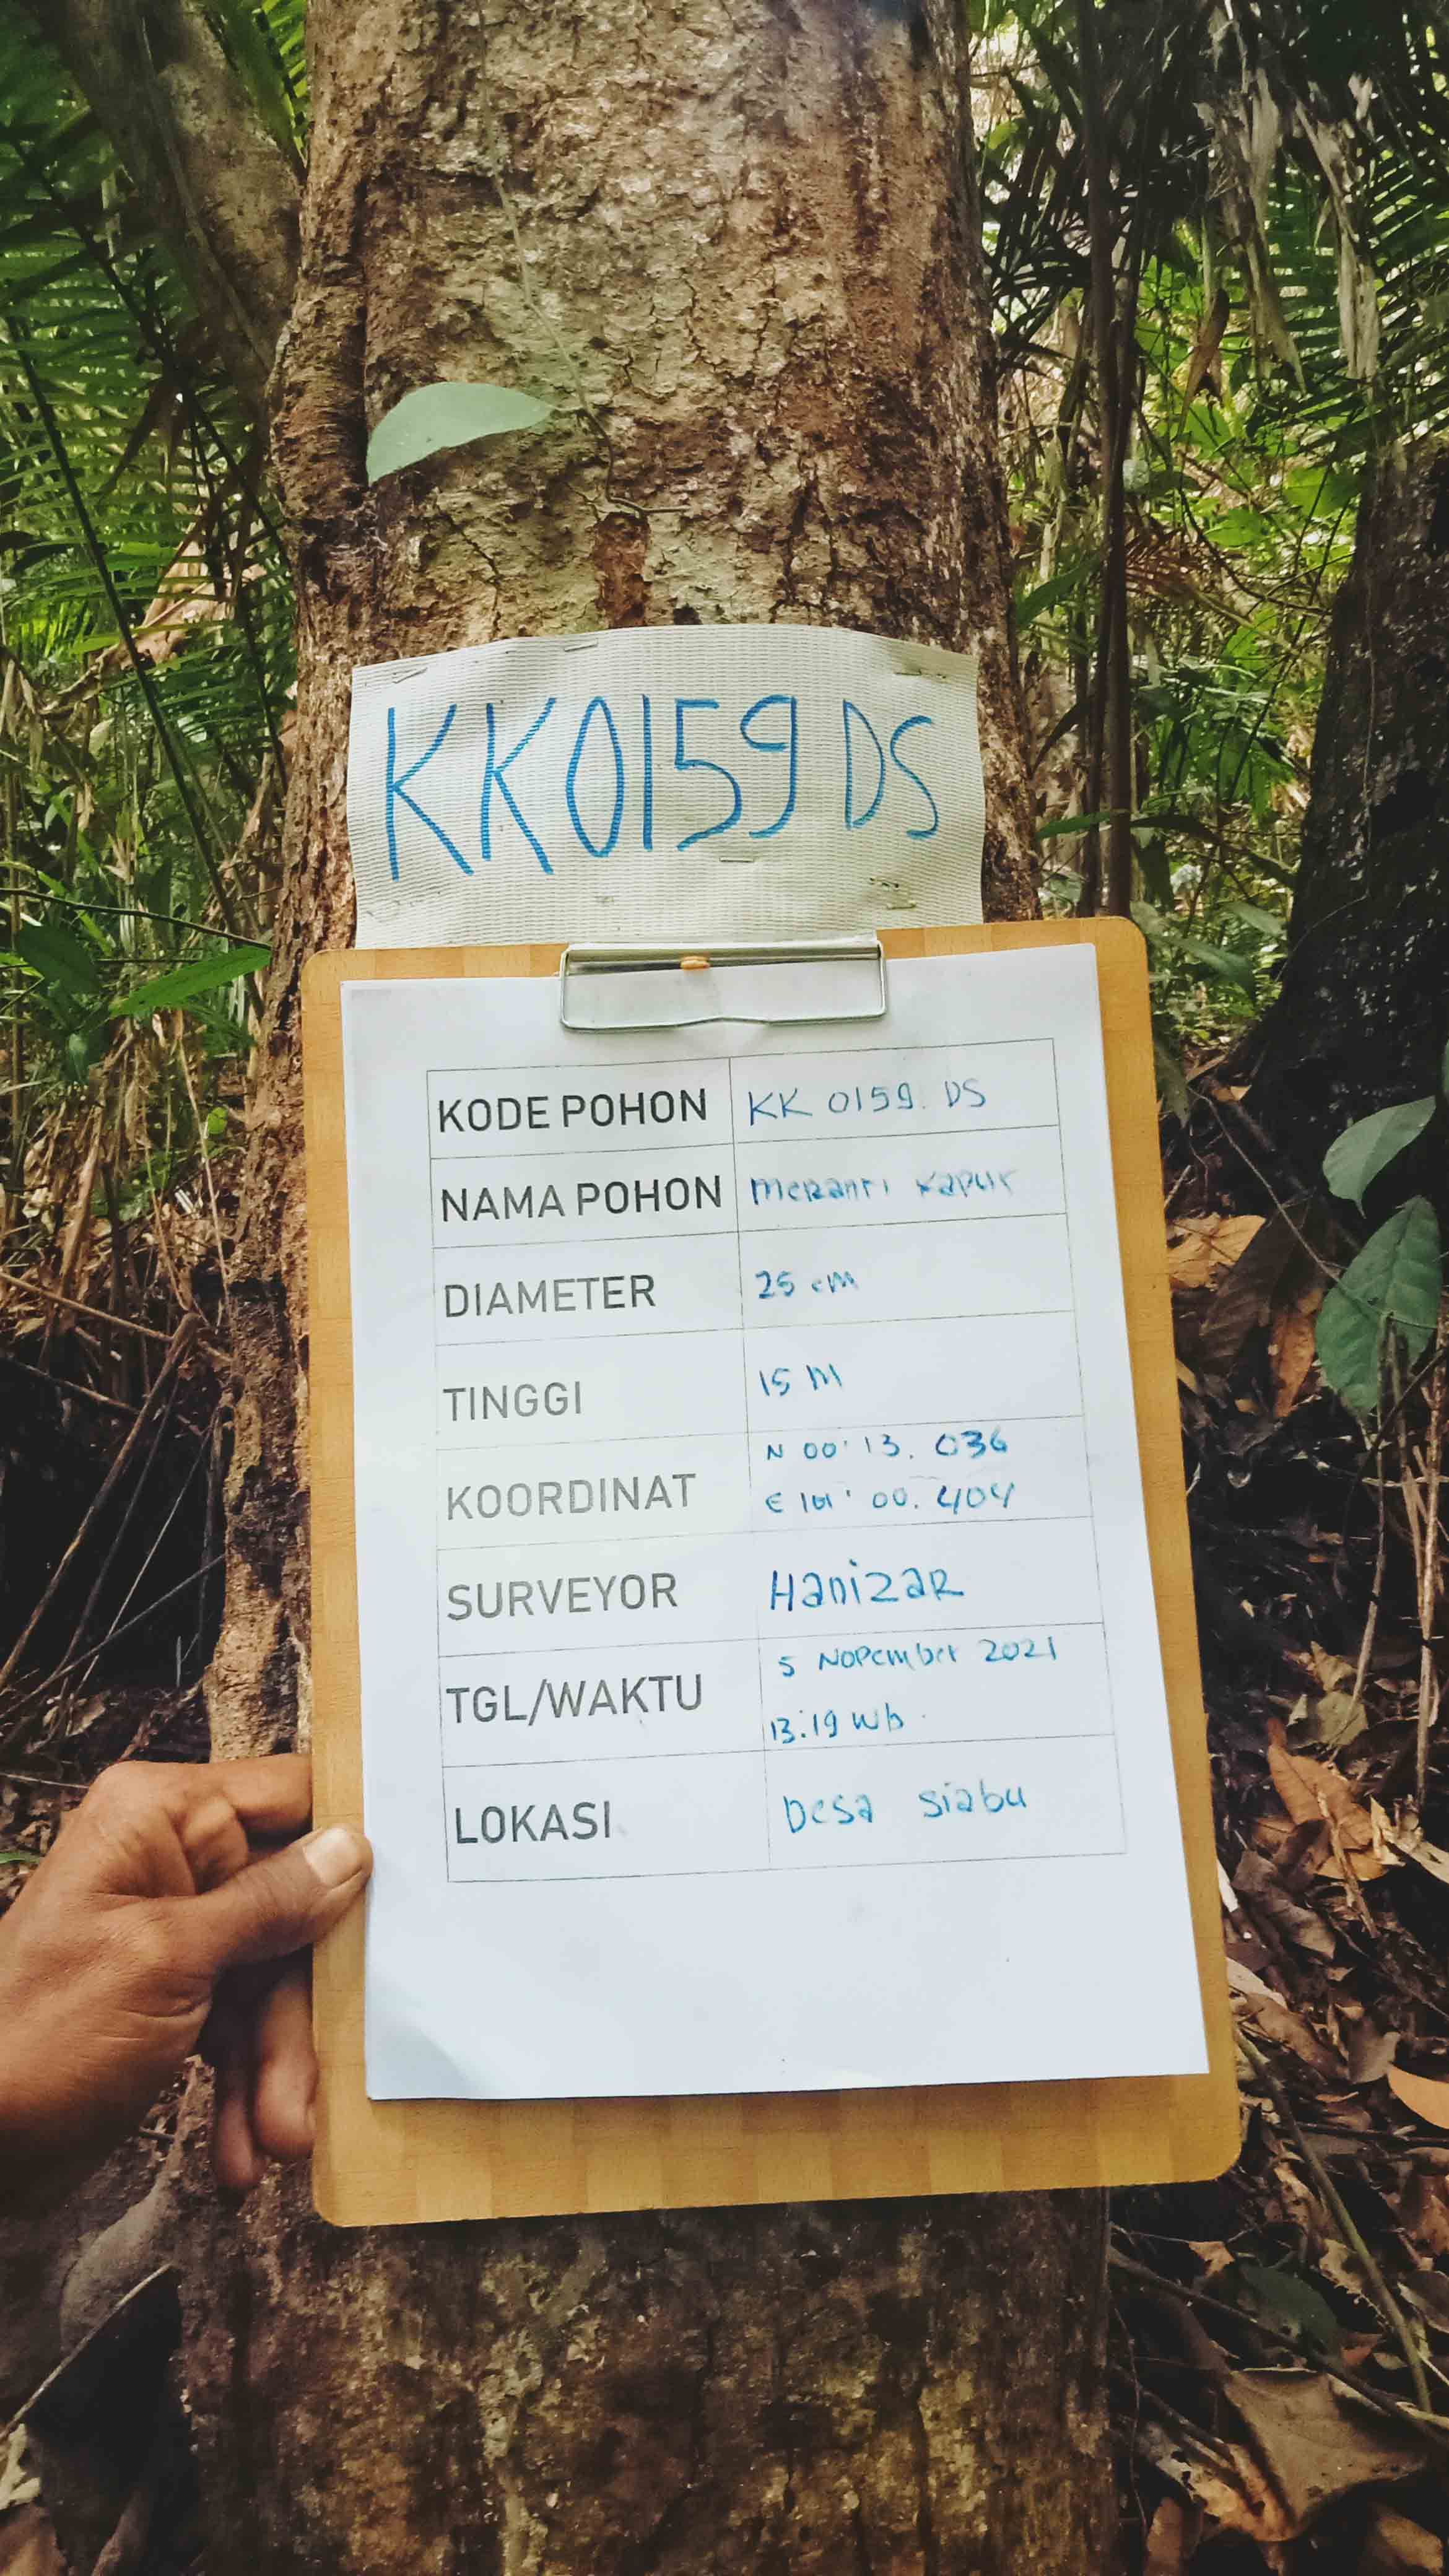 KK0159 DS
KODE POHON KK 0159. DS
NAMA POHON meRanti kapur
DIAMETER 25 cm
TINGGI 15 M
KOORDINAT N 00' 13. 036
E 101' 00. 404
SURVEYOR HanizaR
TGL/WAKTU 5 Nopember 2021
13:19 Wib.
LOKASI Desa siabu